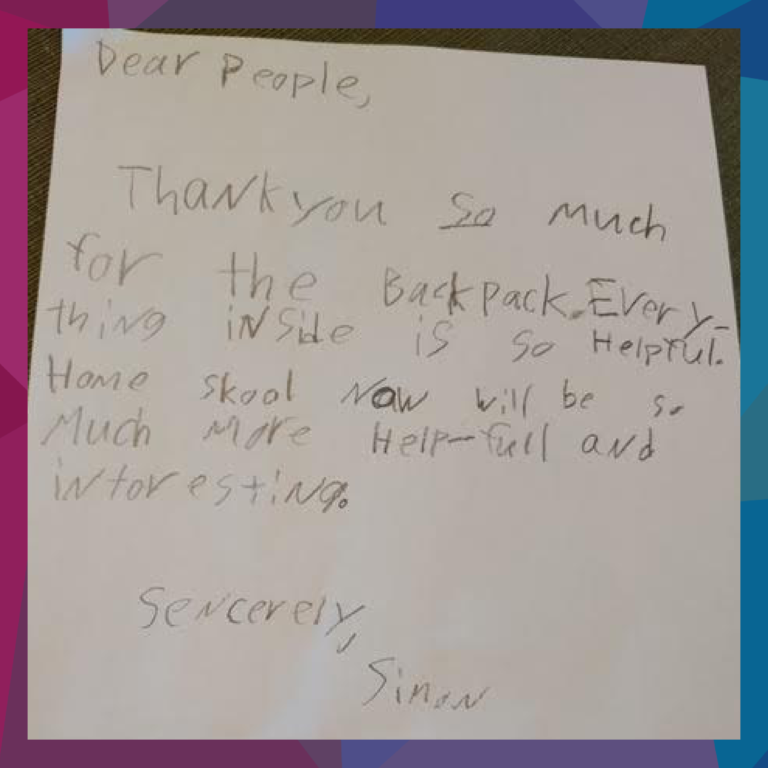 Dear People,
Thank you so much
for the Backpack. Every-
thing inside is so Helpful.
Home skool Now will be so
Much More Help-full and
intoresting.
Sencerely,
Simon